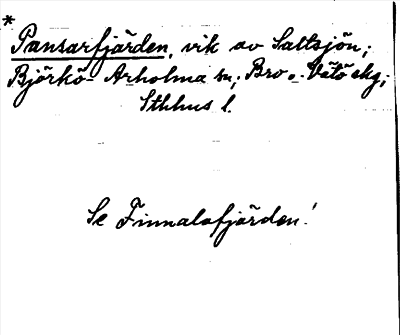 *
Pansarfjärden, vik av Saltsjön;
Björkö-Arholma sn; Bro o. Vätö skg;
Sthlms l.
Se Finnalafjärden!